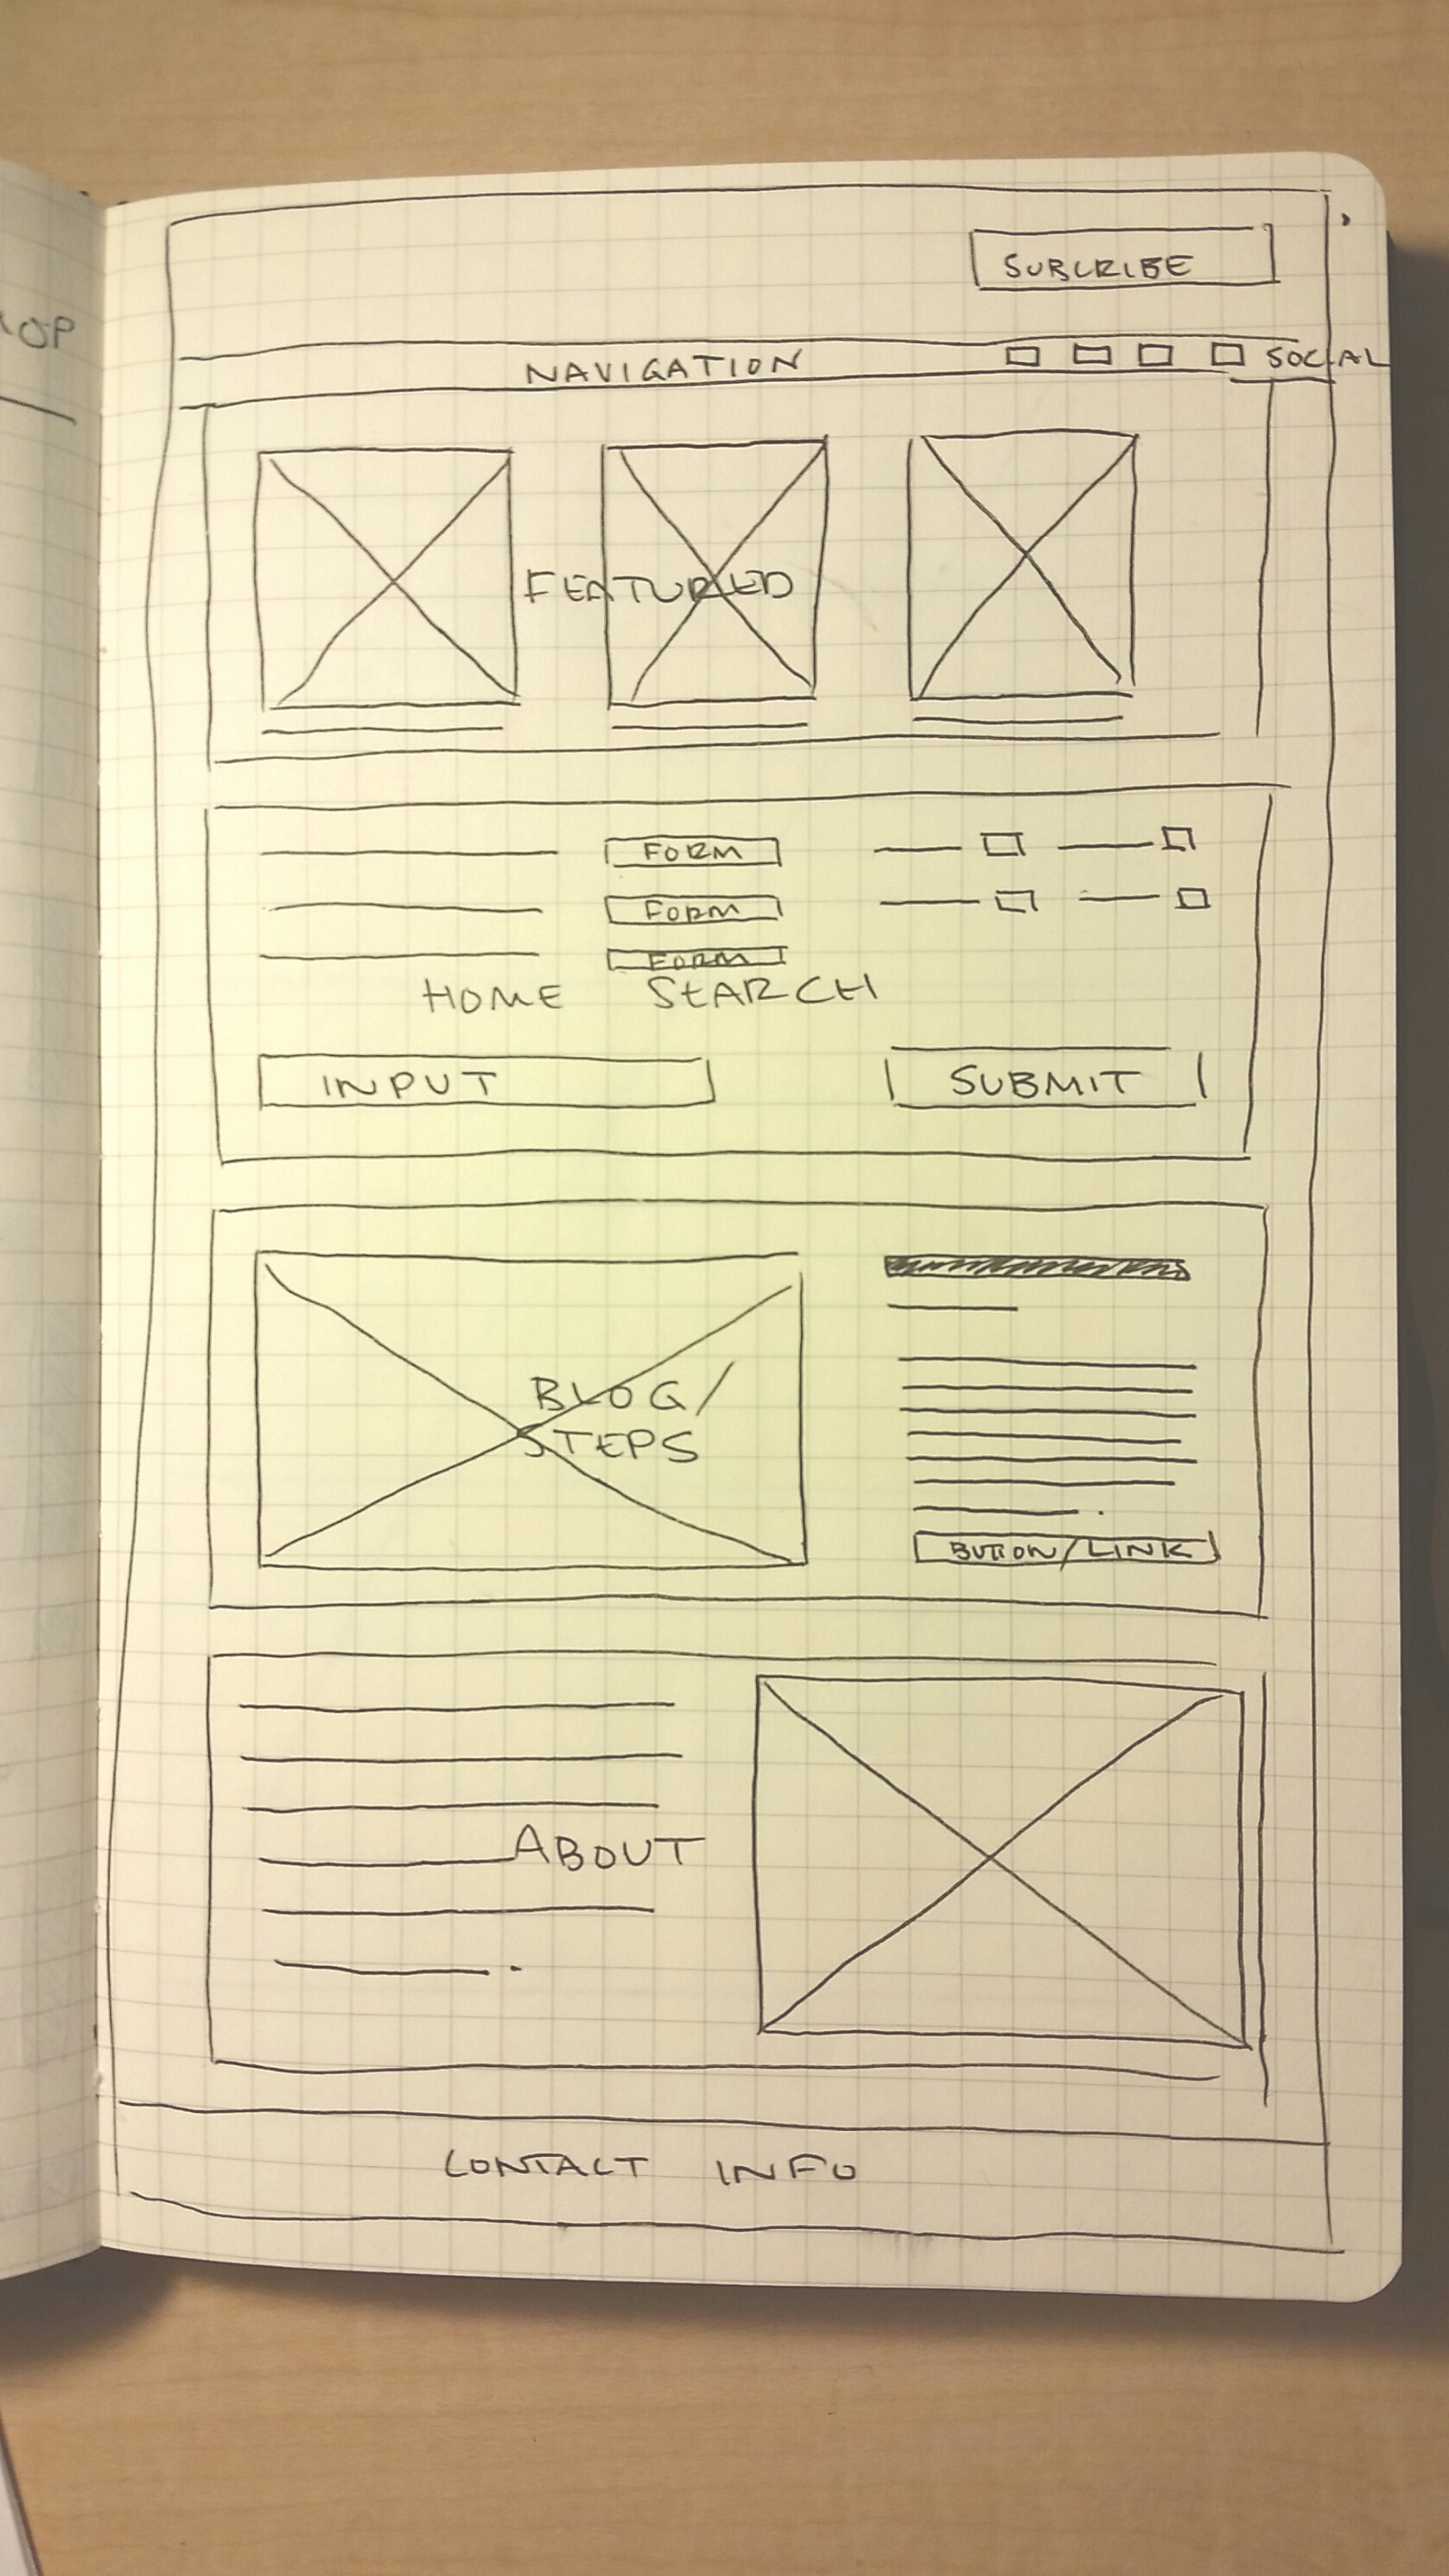 SUBCRIBE
NAVIGATION SOCIAL
FEATURED
FORM
FORM
FORM
HOME SEARCH
INPUT SUBMIT
BLOG/
STEPS
BUTTON/LINK
ABOUT
CONTACT INFO